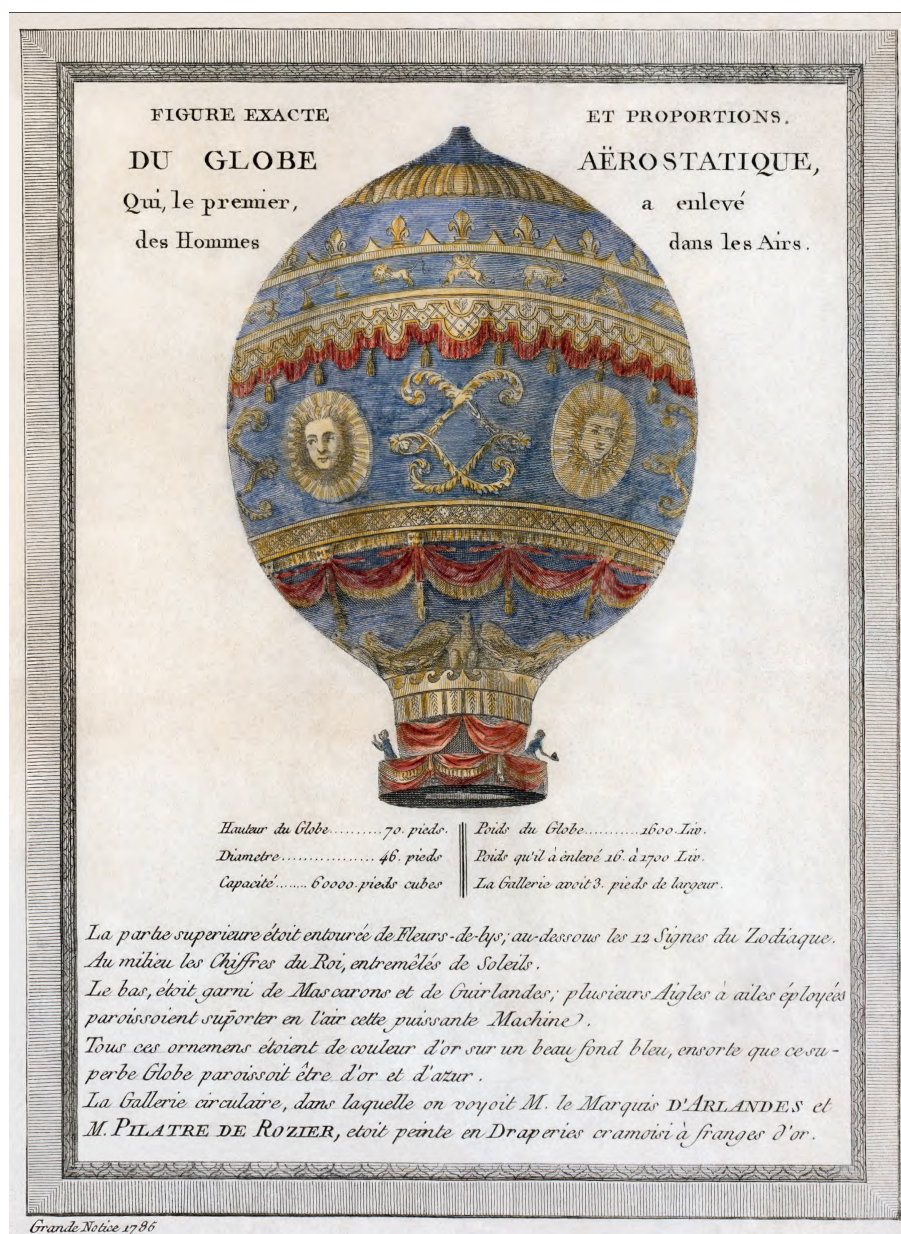 FIGURE EXACTE ET PROPORTIONS.
DU GLOBE AËROSTATIQUE,
Qui, le premier, a enlevé
des Hommes dans les Airs.
Hauteur du Globe..........70. pieds.
Diametre................. 46. pieds
Capacité....... 60000. pieds cubes
Poids du Globe...........1600. Liv.
Poids qu'il à enlevé 16. à 1700 Liv.
La Gallerie avoit 3. pieds de largeur.
La partie superieure étoit entourée de Fleurs-de-lys; au-dessous les 12 Signes du Zodiaque.
Au milieu les Chiffres du Roi, entremêlés de Soleils.
Le bas, étoit garni de Mascarons et de Guirlandes; plusieurs Aigles à ailes éployées
paroissoient suporter en l'air cette puissante Machine.
Tous ces ornemens étoient de couleur d'or sur un beau fond bleu, ensorte que ce su-
perbe Globe paroissoit être d'or et d'azur.
La Gallerie circulaire, dans laquelle on voyoit M. le Marquis D'ARLANDES et
M. PILATRE DE ROZIER, etoit peinte en Draperies cramoisi à franges d'or.
Grande Notice 1786